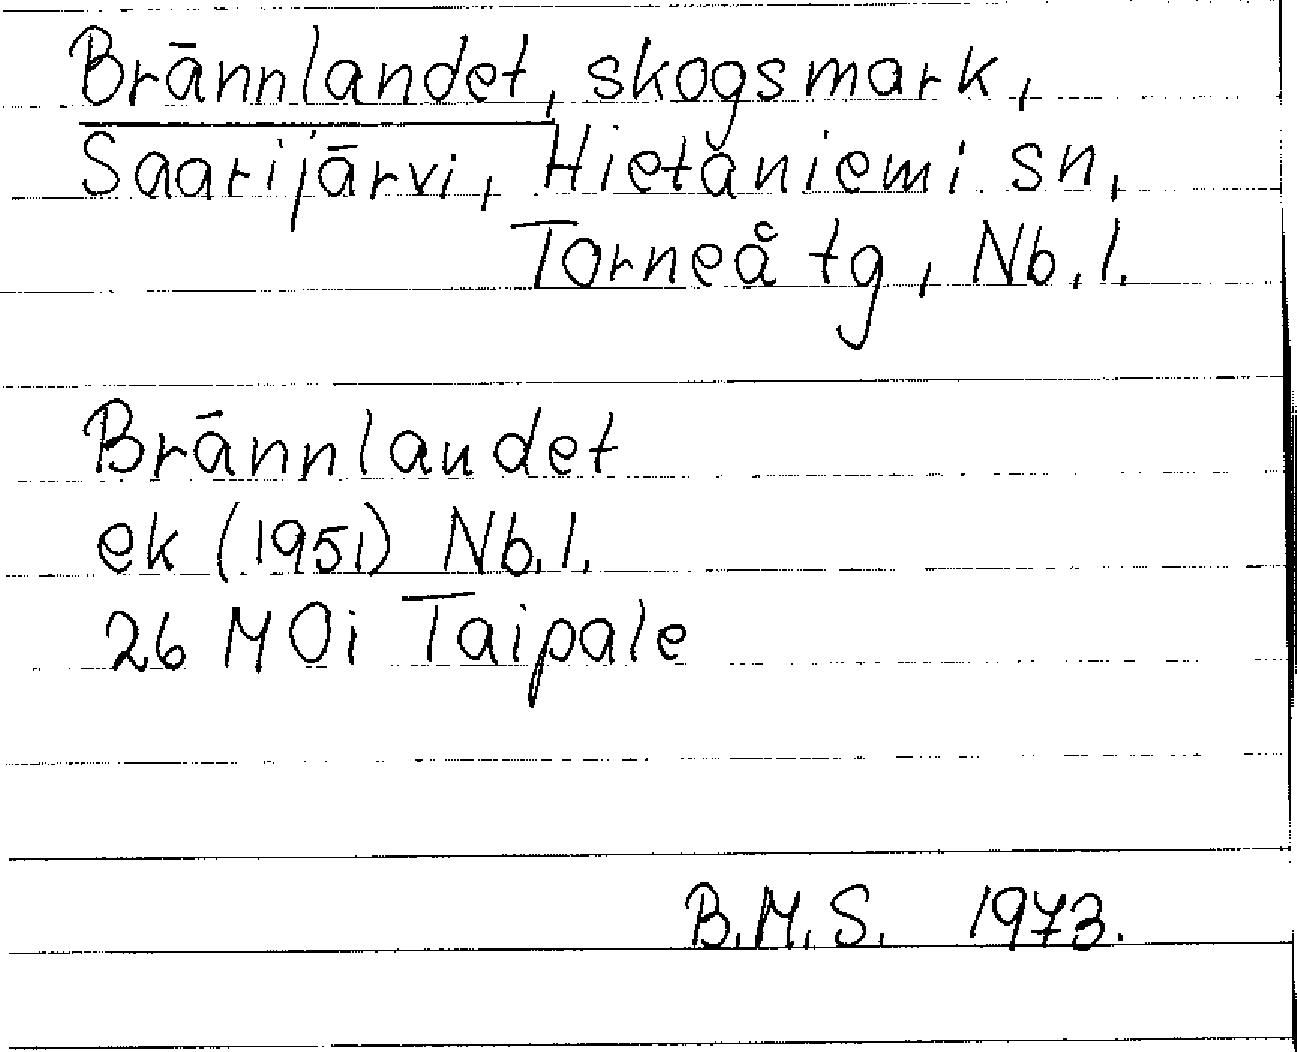 Brännlandet, skogsmark,
Saarijärvi, Hietaniemi sn,
Torneå tg, Nb.l.
Brännlandet
ek (1951) Nb.l.
26 M 0i Taipale
B.M.S. 1973.